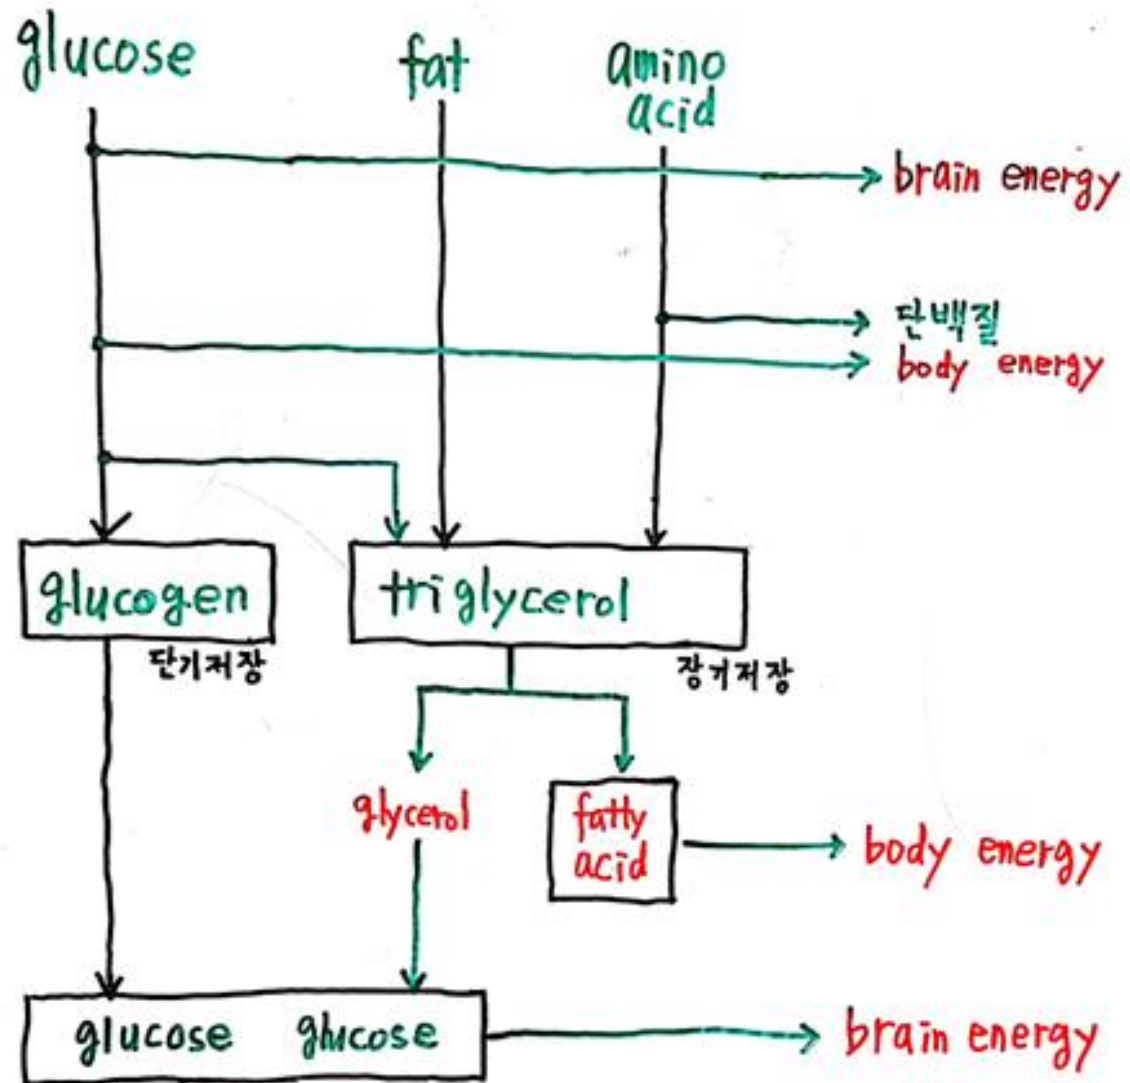 glucose
fat
amino
acid
brain energy
단백질
body energy
glucogen
triglycerol
단기저장
장기저장
glycerol
fatty
acid
body energy
glucose glucose
brain energy